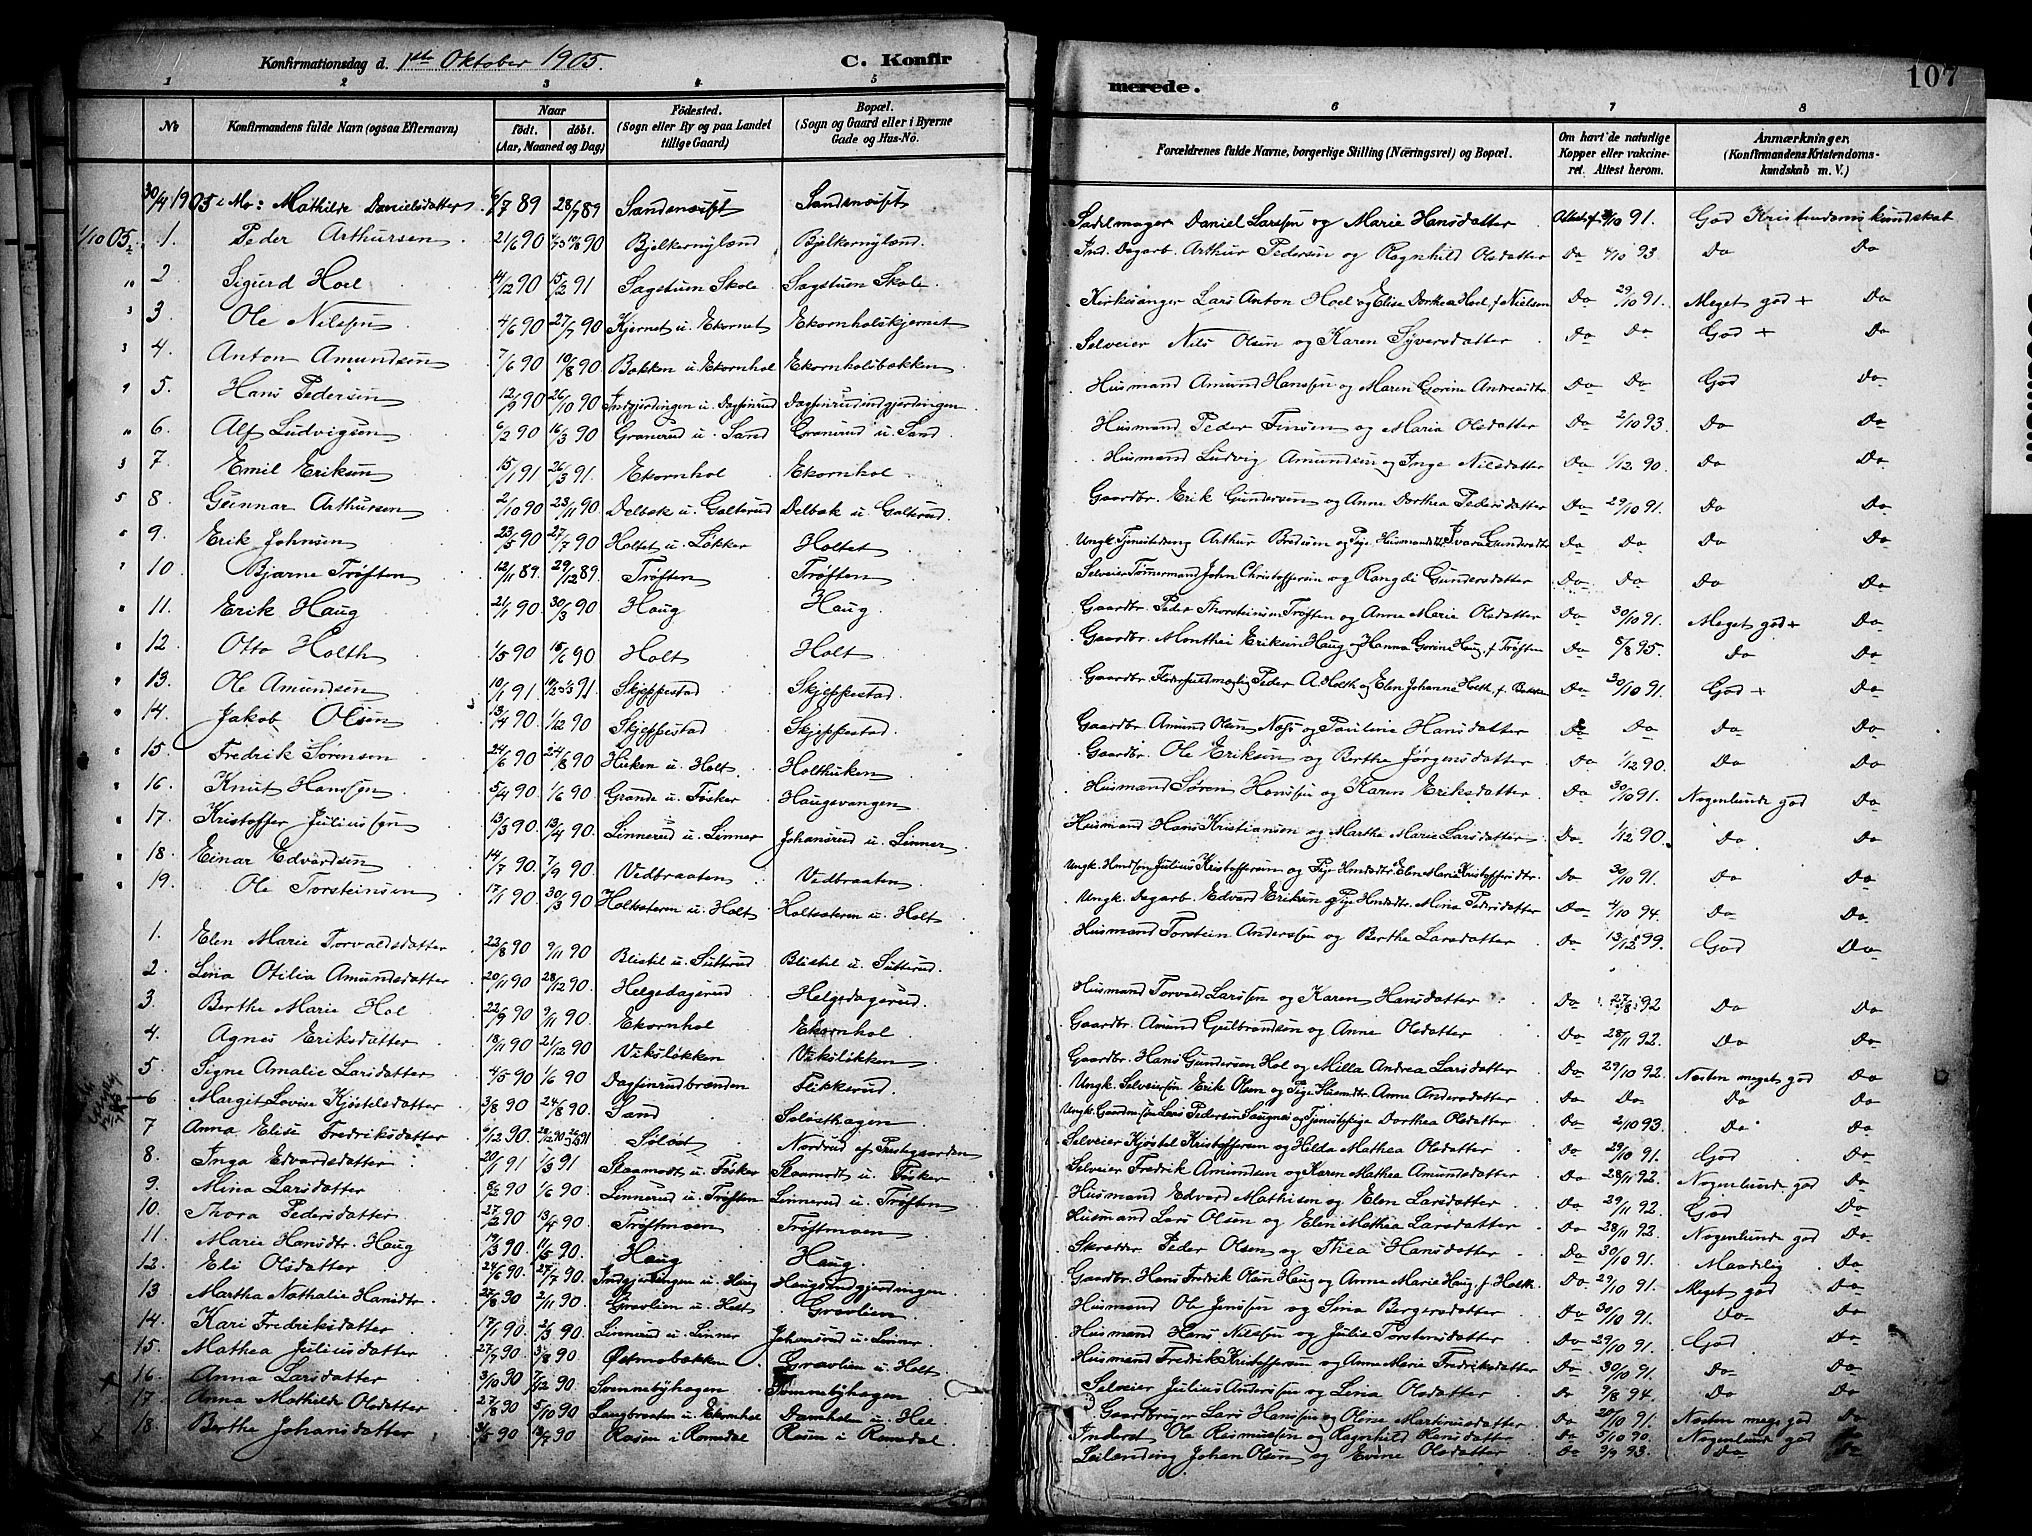 Konfirmationsdag d. 1ste Oktober 1905. C. Konfir
merede. 107
1 2 3 4 5 6 7 8
No Konfirmandens fulde Navn (ogsaa Efternavn) Naar født. døbt. (Aar, Maaned og Dag) Fødested. (Sogn eller By og paa Landet tillige Gaard) Bopæl. (Sogn og Gaard eller i Byerne Gade og Hus-No. Forældrenes fulde Navne, borgerlige Stilling (Næringsvei) og Bopæl. Om havt de naturlige Kopper eller vakcineret. Attest herom. Anmærkninger. (Konfirmandens Kristendomskundskab m. V.)
30/4 1905 Mathilde Danielsdatter 89 28/7 89 Sadelmager Daniel Larsen og Marie Hansdatter 91. God Kristendomskundskab
1/10 05. 1. Peder Arthursen 21/6 90 90 Bjelkernyland Bjelkernyland. Ind. Dagarb. Arthur Pedersen og Ragnhild Olsdatter Do 4/10 93 Do Do
2 Sigurd Hoel 14/12 90 15/2 91 Sagstuen Skole Sagstuen Skole Kirkesanger Lars Anton Hoel og Elise Dorthea Hoel f. Nielsen Do 29/10 91. Meget god + Do
3. Ole Nilsen 4/6 90 27/7 90 Kjernet u. Ekornet Ekornholskjernet Selveier Nils Olsen og Karen Syversdatter Do Do God + Do
4. Anton Amundsen 7/6 90 10/8 90 Bakken u. Ekornhol Ekornholsbakken Husmand Amund Hanssen og Maren Gorine Andreasdtr Do Do God Do
5. Hans Pedersen 12/9 90 26/10 90 Indgjerdingen u. Dagfinrud Dagfinrudindgjerdingen Husmand Peder Finsen og Marie Olsdatter Do 2/10 93. Do Do
6. Alf Ludvigsen 6/2 90 16/3 90 Granerud u. Sand Granerud u. Sand Husmand Ludvig Amundsen og Inge Nilsdatter Do 1/12 90. Do Do
7. Emil Eriksen 15/1 91 26/3 91. Ekornhol Ekornhol Gaardbr. Erik Gundersen og Anne Dorthea Pedersdatter Do 29/10 91. Do Do
8. Gunnar Arthursen 2/10 90 23/11 90 Delbak u. Galterud Delbak u. Galterud. Ungk. Tjenestedreng Arthur Bredesen og Pige Husmandsdtr. Ivara Gundersdtr Do Do Do Do
9. Erik Johnsen 23/5 90 27/7 90 Holtet u. Løkker Holtet Selveier Tømermand John Christoffersen og Rangdi Gundersdatter Do Do Do Do
10. Bjarne Trøften 12/11 89. 29/12 89 Trøften Trøften. Gaardbr. Peder Thorsteinsen Trøften og Anne Marie Olsdatter Do 30/10 91. Meget god + Do
11. Erik Haug 21/1 90 30/3 90 Haug Haug. Gaardbr. Monthei Eriksen Haug og Hanna Gorine Haug f. Trøften Do 5/8 95. Do Do
12. Otto Holth 1/5 90 15/6 90 Holt Holt Peder A. Holth og Elen Johanne Holth f. Bakken Do 30/10 91. God + Do
13. Ole Amundsen 10/1 91 91 Skjeppestad Skjeppestad Gaardbr. Amund Olsen Næss og Pauline Hansdatter Do Do Do Do
14. Jakob Olsen 13/4 90 1/12 90 Skjeppestad Skjeppestad Gaardbr. Ole Eriksen og Berthe Jørgensdatter Do 1/12 90. Do Do
15. Fredrik Sørensen 24/6 90 24/8 90 Huken u. Holt Holthuken Husmand Søren Hansen og Karen Eriksdatter Do 30/10 91. Nogenlunde god Do
16. Knut Hanssen 5/4 90 1/6 90 Grande u. Fosker Haugsvangen Husmand Hans Kristiansen og Marthe Marie Larsdatter Do 1/12 90. Do Do
17. Kristoffer Juliussen 13/3 90. 13/4 90. Linnerud u. Linner Johansrud u. Linner Ungk. Julius Kristoffersen og Pige Elen Marie Kristoffersdtr. Do 30/10 91. Do Do
18. Einar Edvardsen 14/7 90. 7/9 90. Vedbraaten Vedbraaten Ungk. Dagarb. Edvard Eriksen og Pige Mina Pedersdatter Do 4/10 94. Do Do
19. Ole Torsteinsen 17/1 90 30/3 90 Holtsæteren u. Holt Holtsæteren u. Holt Husmand Torstein Andersen og Berthe Larsdatter Do 13/12 99. God Do
1. Elen Marie Torvaldsdatter 22/8 90 9/11 90 Blistil u. Sutterud. Blistil u. Sutterud. Husmand Torvald Larsen og Karen Hansdatter Do 27/8 92 Do Do
2. Lina Otilia Amundsdatter 20/11 90 28/12 90. Helgedagsrud Helgedagsrud. Gaardbr. Amund Gulbrandsen og Anne Olsdatter Do 28/11 92. Do Do
3. Berthe Marie Hol 22/9 90 9/11 90. Ekornhol Ekornhol Gaardbr. Hans Gundersen Hol og Milla Andrea Larsdatter Do 29/10 92. Næsten meget god Do
4. Agnes Eriksdatter 18/11 90 21/12 90. Viksløkken Viksløkken Ungk. Selveiersøn Erik Olsen og Pige Husmdtr. Anne Andersdatter Do Do Do Do
5. Signe Amalie Larsdatter 4/5 90 1/6 90 Dagfinrudbrænden Flikkerud. Ungk. Gaardmsøn Lars Pedersen Saugnæs og Tjenestepige Dorthea Olsdatter Do 2/10 93. Do Do
6. Margit Lovise Kjøstelsdatter 3/8 90 24/8 90. Sand Soløsthagen Selveier Kjøstel Kristoffersen og Helda Mathea Olsdatter Do 29/10 91. God Do
7 Anna Elise Fredriksdatter 6/12 90. Soløst Nordrud af Prestegaarden Selveier Fredrik Amundsen og Karen Mathea Amundsdatter Do 28/11 92. Nogenlunde god Do
8. Inga Edvardsdatter 20/1 91 1/3 91 Skaamodt u. Fosker Skaamodt u. Fosker Husmand Edvard Mathisen og Elen Larsdatter Do 29/11 92. God Do
9. Mina Larsdatter 8/2 90 1/6 90. Linnerud u. Trøften Linnerud u. Trøften Husmand Lars Olsen og Elen Mathea Larsdatter Do 28/11 92. Nogenlunde god Do
10. Thora Pedersdatter 27/2 90 13/4 90. Trøftmoen Trøftmoen Skrædder Peder Olsen og Thea Hansdatter Do 30/10 91. Maadelig Do
11. Marie Hansdtr. Haug 19/3 90. 11/5 90. Haug Haug Gaardbr. Hans Fredrik Olsen Haug og Anne Marie Haug f. Holth Do 29/10 91. Meget god Do
12. Eli Olsdatter 24/6 90. 27/7 90. Indgjerdingen u. Haug Haugsindgjerdingen Husmand Ole Jensen og Lina Bergersdatter Do 30/10 91. Do Do
13. Martha Nathalie Hansdtr. 27/8 90 2/11 90 Gravlien u. Holt Gravlien Husmand Hans Nilssen og Julie Torstensdatter Do 29/10 91. God Do
14. Kari Fredriksdatter 17/1 90. 2/3 90. Linnerud u. Linner Johansrud u. Linner Husmand Fredrik Kristoffersen og Anne Marie Fredriksdatter Do 30/10 91. Do Do
15. Mathea Juliusdatter 27/7 90 90 Østmobakken Gravlien u. Holt Selveier Julius Andersen og Lina Olsdatter Do 9/8 94. Do Do
16. Anna Larsdatter 3/10 90 7/12 90. Tomnebyhagen Tomnebyhagen Gaardbruger Lars Hansen og Oline Martinusdatter Do 20/10 91. Næsten meget god Do
17. Anna Mathilde Olsdatter 27/8 90 5/10 90 Langbraaten u. Ekornhol Damholen u. Hol Inderst Ole Rasmussen og Ragnhild Hansdatter Do 5/10 90. Nogenlunde god Do
18. Berthe Johansdatter 90 13/7 90 Rosen i Romedal Rosen i Romedal Leilending Johan Olsen og Evine Olsdatter Do 9/9 93. Do Do